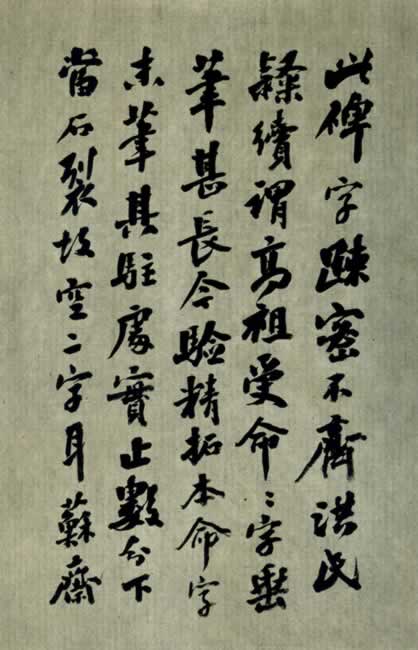 此碑字疎密不齊洪氏
隸續謂高祖受命〻字垂
筆甚長今驗精拓本命字
末筆其駐處實止數分下
當石裂故空二字耳蘇齋